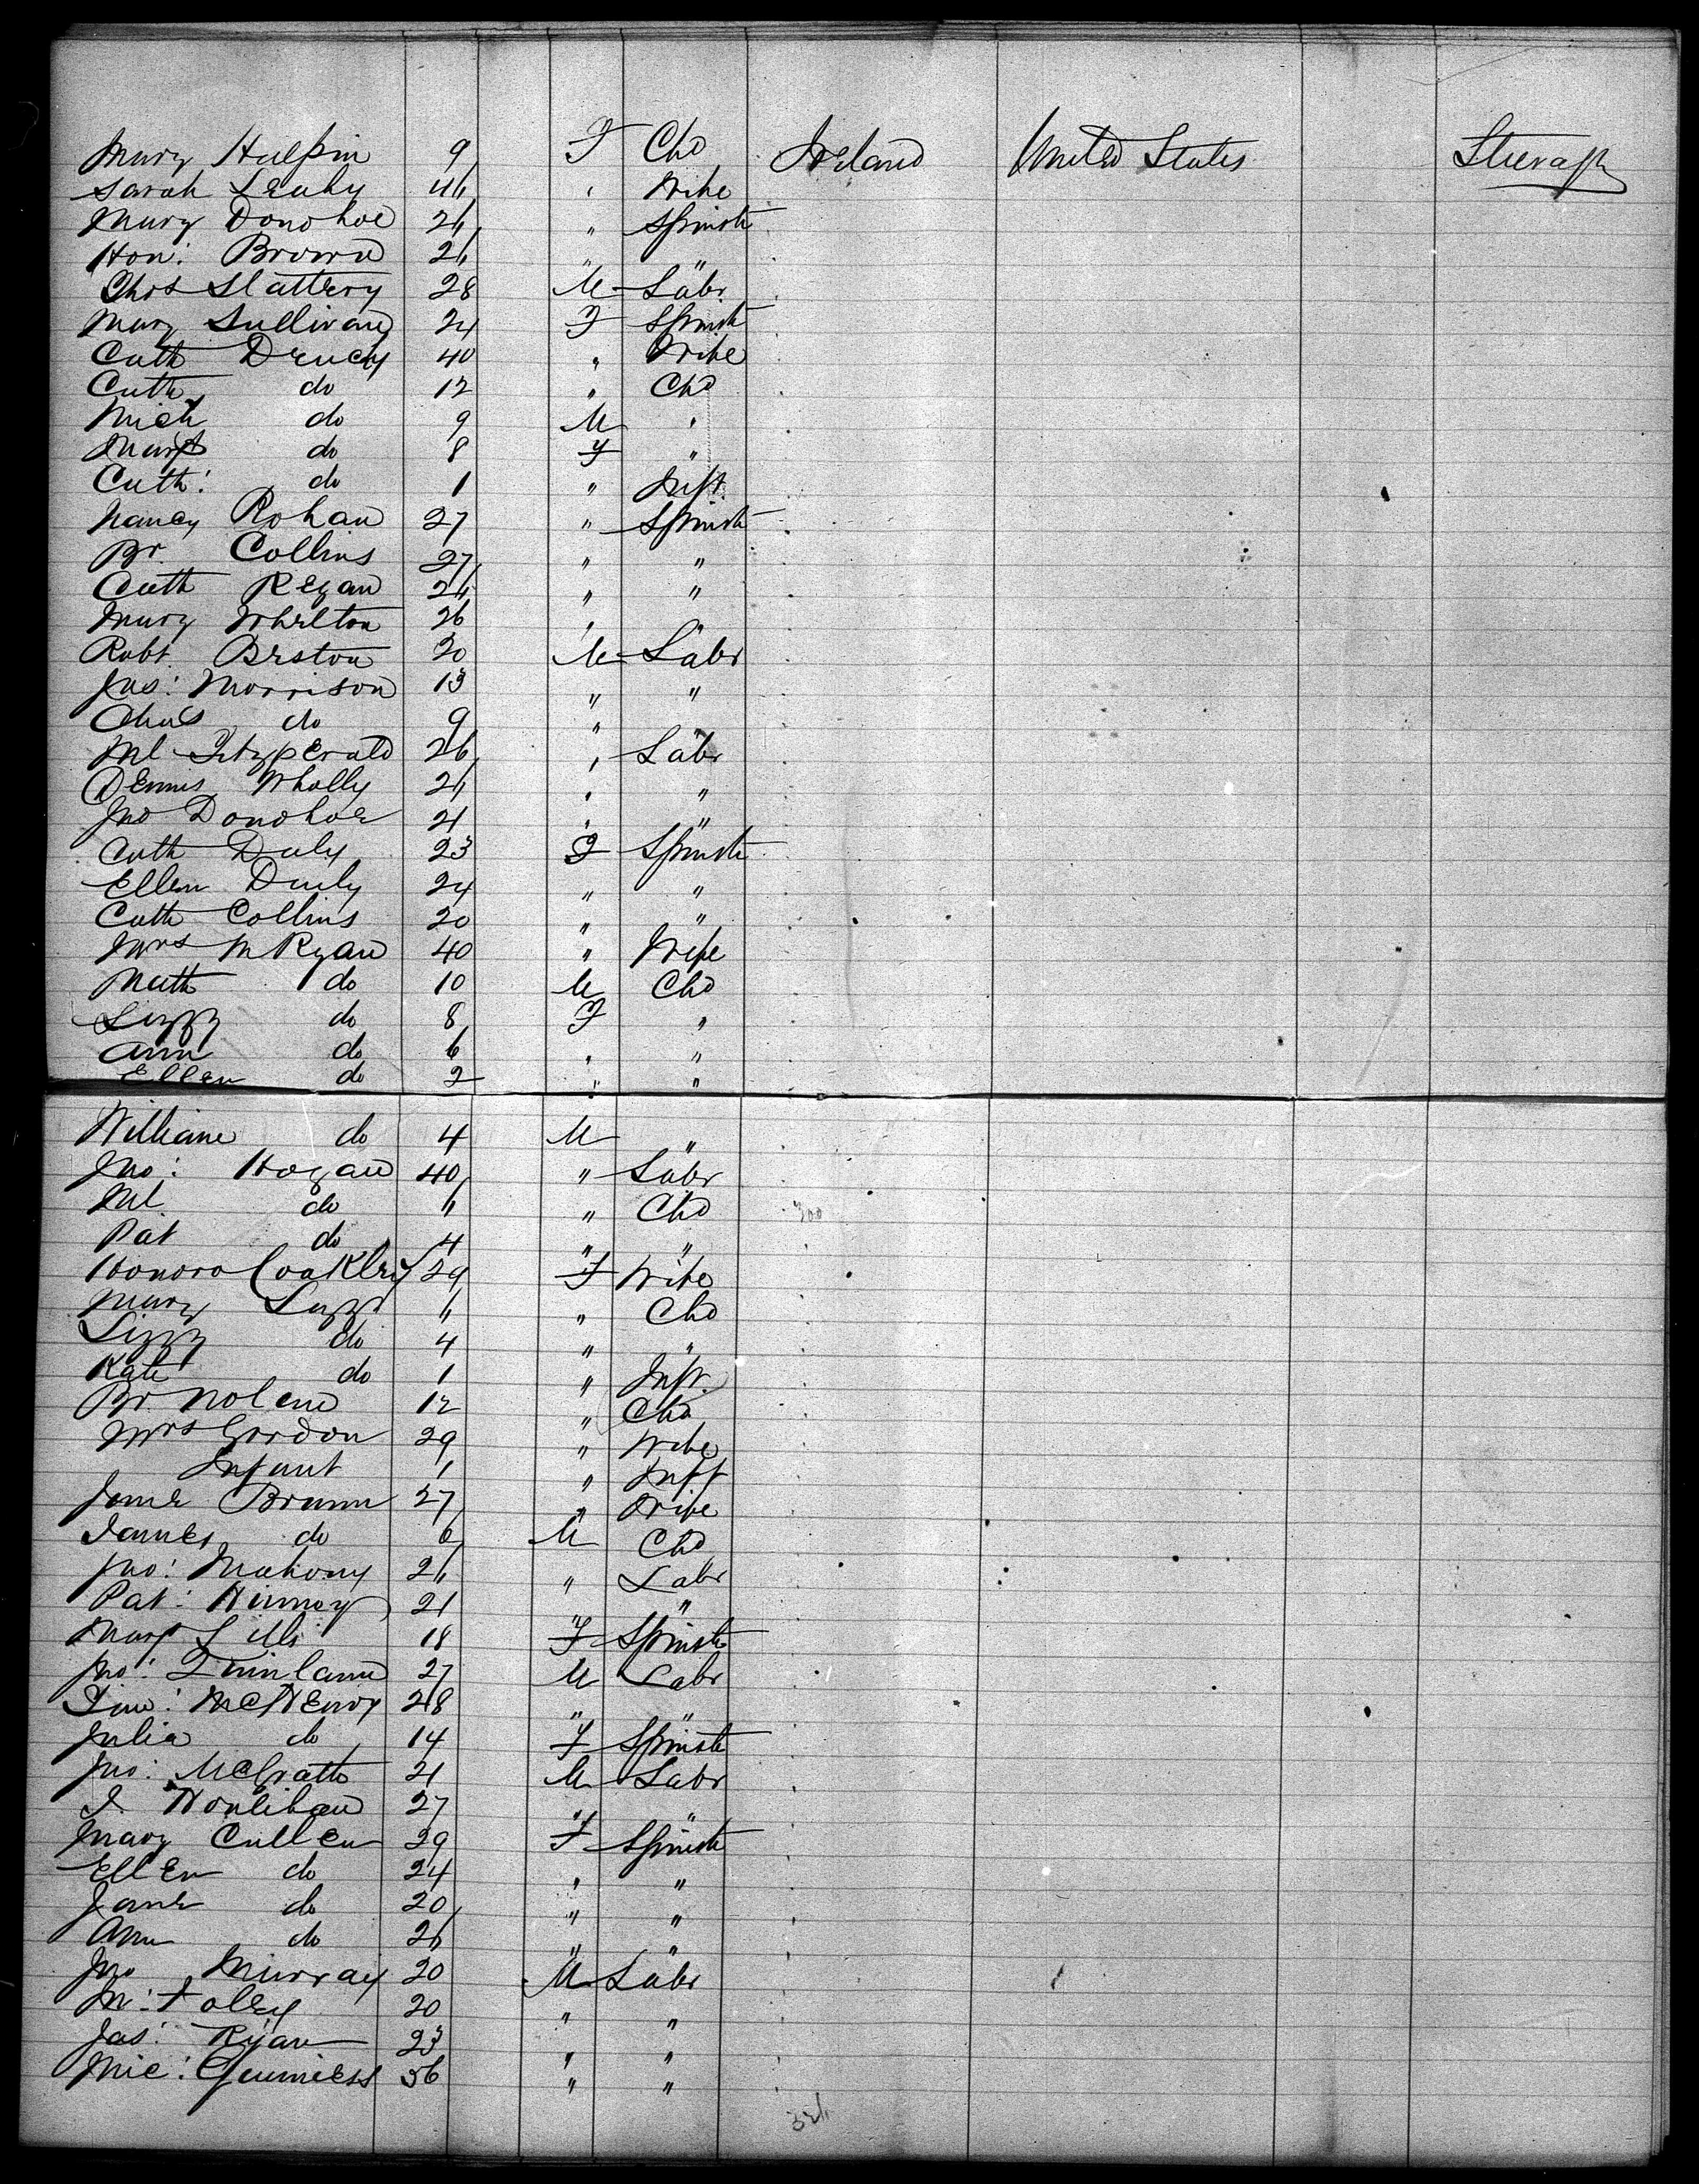 Mary Halpin 9 F Chd Ireland United States Steerage
Sarah Leahy 46 " Wife
Mary Donohoe 26 " Spinstr
Hon: Brown 26 " "
Chrs Slattery 28 M Labr
Mary Sullivan 24 F Spinstr
Cath 40 " Wife
Cath do 12 " Chd
Mich do 9 M "
Margt do 8 F "
Cath: do 1 " Inft
Nancy Rohan 27 " Spinstr
Br. Collins 27 " "
Cath Regan 26 " "
Mary Whelton 26 " "
Robt Beston 20 M Labr
Jas: Morrison 13 " "
Chas do 9 "
Ml Fitzgerald 26 " Labr
Dennis Wholly 26 " "
Jno Donohoe 21 " "
Cath Daly 23 F Spinstr
Ellen Daily 24 " "
Cath Collins 20 " "
Mrs M Ryan 40 " Wife
Math do 10 M Chd
Lizzy do 8 F "
Ann do 6 " "
Ellen do 2 " "
William do 4 M "
Jno: Hogan 40 " Labr
Ml do 6 " Chd 300
Pat do 4 " "
Honora Coakley 29 F Wife
Mary 6 " Chd
Lizzy do 4 " "
Kate do 1 " Inft
Br. Nolan 12 " Chd
Mrs Gordon 29 " Wife
Infant 1 " Inft
Jane Brunn 27 " Wife
James do 6 M Chd
Jno: Mahony 26 " Labr
Pat: 21 " "
Margt 18 F Spinstr
Jno: Quinlann 27 M Labr
Tim: McHenry 28 " "
Julia do 14 F Spinstr
Jno: McGrath 21 M Labr
J. Honlihan 27 " "
Mary Cullen 29 F Spinstr
Ellen do 24 " "
Jane do 20 " "
Ann do 26 " "
Jno Murray 20 M Labr
M: Foley 20 " "
Jas: Ryan 23 " "
Mic: Guiniess 36 " "